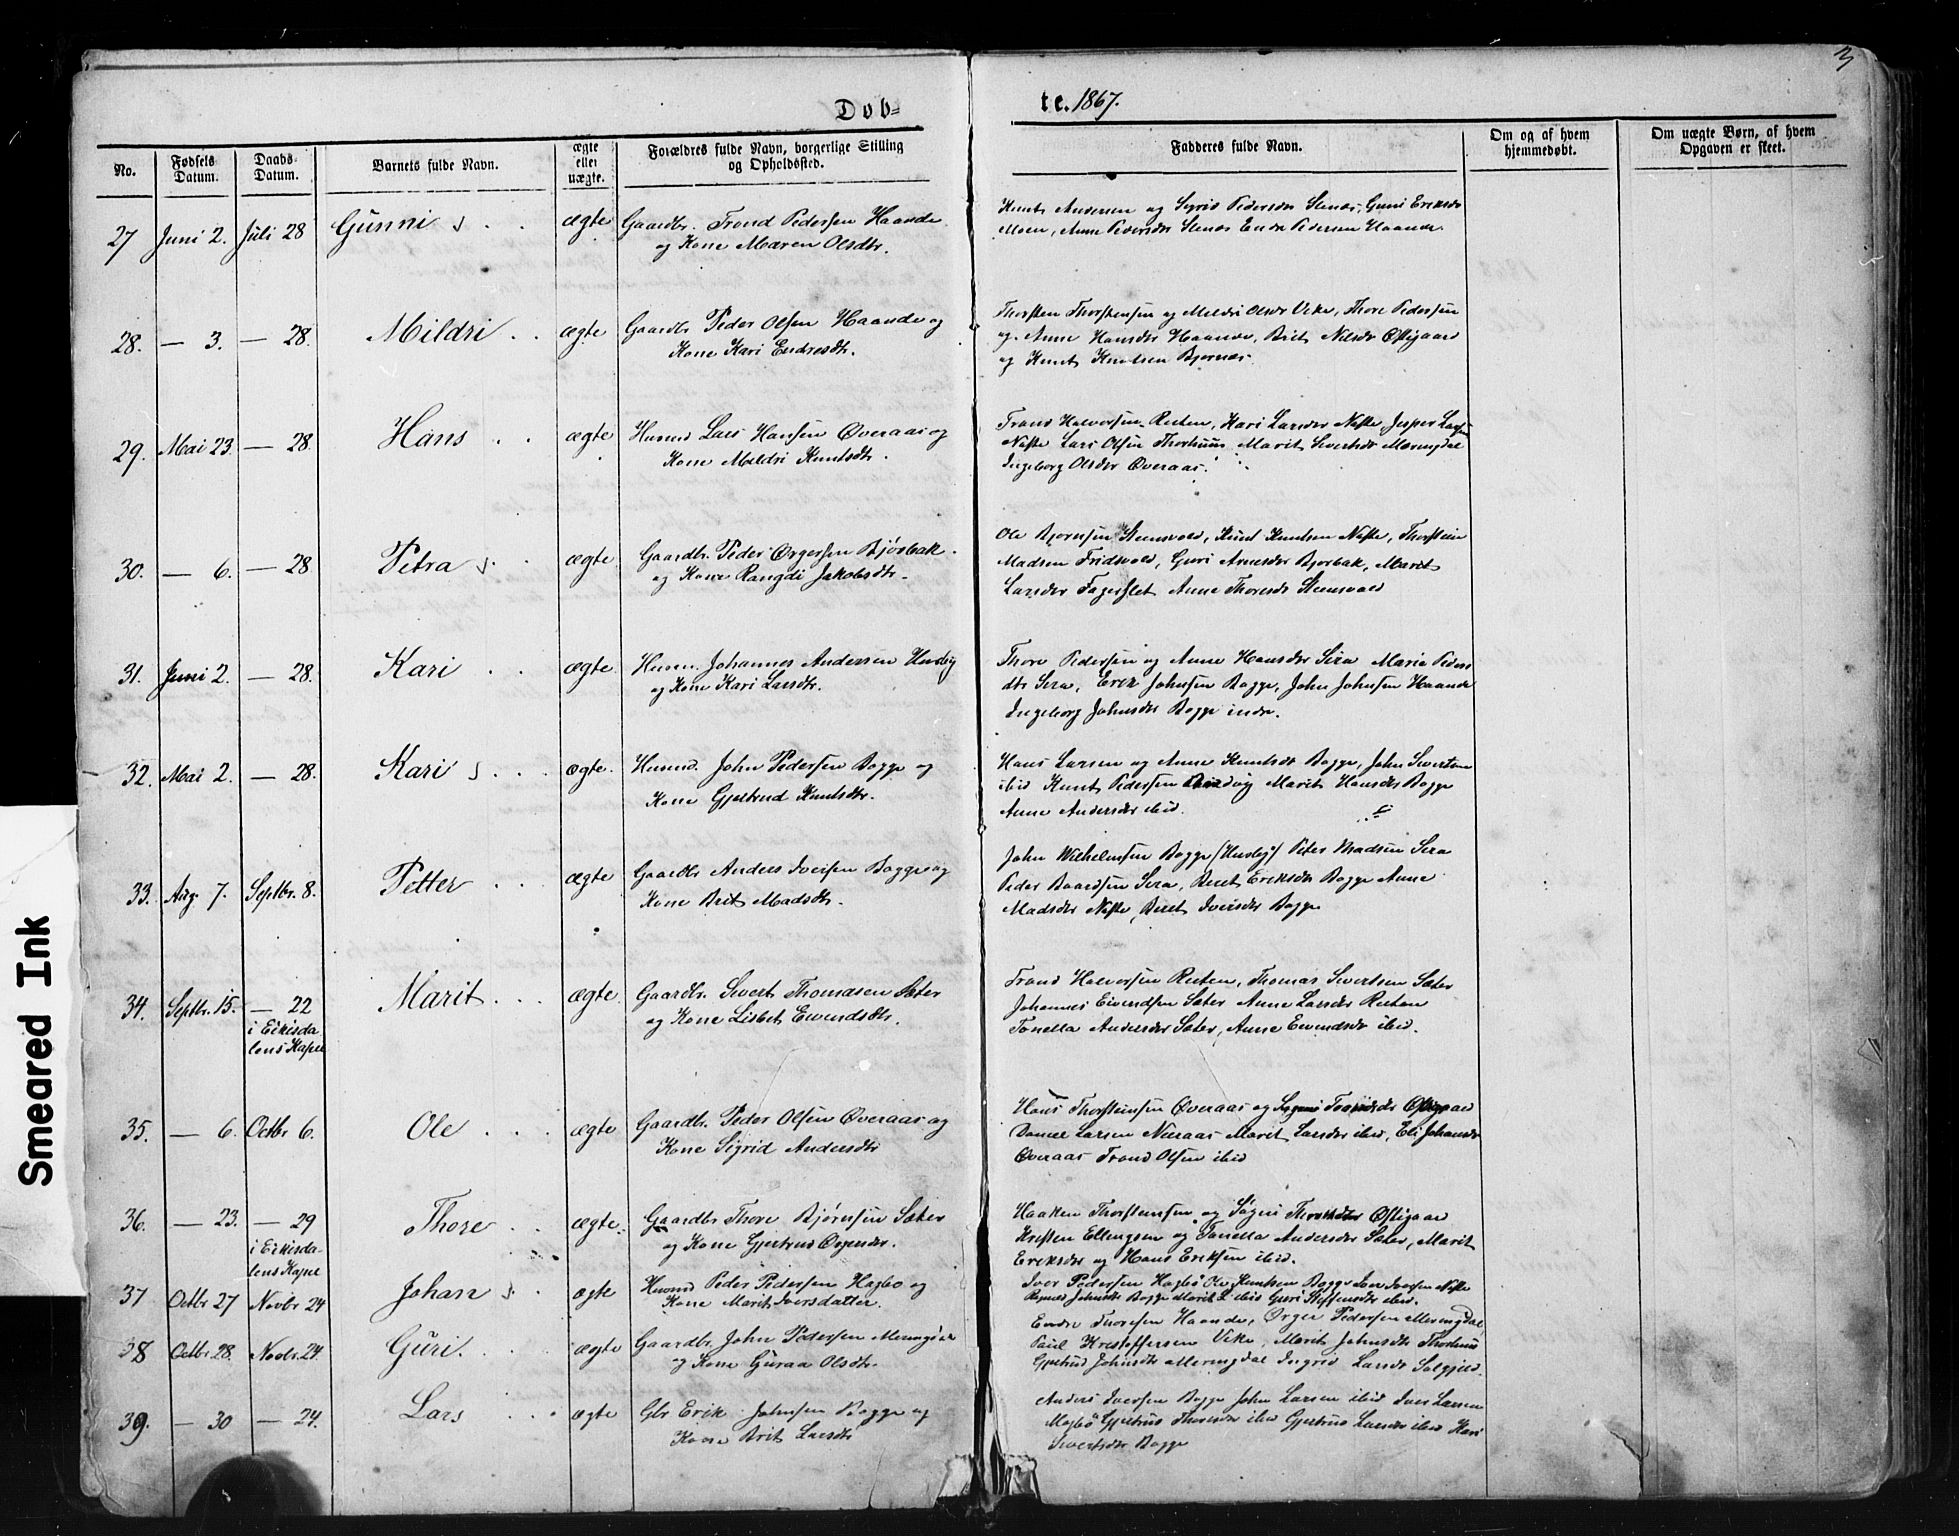 3
Døb=
te. 1867.
No.
Fødsels Datum.
Daabs-Datum.
Barnets fulde Navn.
ægte eller uægte.
Forældres fulde Navn, borgerlige Stilling og Opholdssted.
Fadderes fulde Navn.
Om og af hvem hjemmedøbt.
Om uægte Børn, af hvem Opgaven er skeet.
27 Juni 2. Juli 28 Gunni s ægte Gaardbr. Trond Pedersen Haande
og Kone Maren Olsdtr.
Knut Andersen og Sigrid Pedersdr Stenes, Guni Eriksdr
Moen, Anne Pedersdr Stenes Endr Pedersen Haande.
28. — 3. — 28. Mildri ægte Gaardbr Peder Olsen Haande og
Kone Kari Endresdtr.
Thorsten Thorstensen og Mildri Olsdr Vike, Thore Pedersen
og Anne Hansdr Haande, Brit Nilsdr Østigaard
og Knut Knutsen Bjørnes.
29. Mai 23. — 28. Hans ægte Husmd Lars Hansen Øveraas og
Kone Mildri Knutsdtr.
Trond Halvorsen Reiten, Kari Larsdr Neste, Jesper Larsen
Neste Lars Olsen Thorhuus, Marit Sivertsdr Meringdal
Ingeborg Olsdtr Øveraas.
30. — 6. — 28 Petra s. ægte Gaardbr. Peder Ørgersen Bjørbak
og Kone Rangdi Jakobsdtr.
Ole Bjørnsen Steensvold, Knut Knutsen Neste, Thorstein
Madsen Fridsvold, Guri Arnesdr Bjørbak, Marit
Larsdtr Fagerslet Anne Thoresdr Steensvold
31. Juni 2. — 28. Kari ægte Husm. Johannes Andersen Husby
og Kone Kari Larsdtr.
Thore Pedersen og Anne Hansdtr Sira Maria Peders
dtr Sira, Erik Johnsen Bogge, John Johnsen Haande
Ingeborg Johnsdtr Bogge indre.
32. Mai 2. — 28. Kari s ægte. Husmd. John Pedersen Bogge og
Kone Gjertrud Knutsdtr.
Hans Larsen og Anne Knutsdt Bogge, John Sivertsen
ibid Knut Pedersen Marit Hansdtr Bogge
Anne Andersdtr ibid.
33. Aug. 7. Septbr. 8. Petter ægte Gaardbr Anders Iversen Bogge og
Kone Brit Madsdtr.
John Wilhelmsen Bogge (Husby) Peter Madsen Sira
Peder Baardsen Sira, Beret Eriksdtr Bogge Anne
Madsdtr Neste, Beret Iversdtr Bogge
34. Septbr. 15. — 22 Marit ægte Gaardbr. Sivert Thomasen Sæter
i Eikisda-
lens Kapel
og Kone Lisbet Eivindsdtr.
Trond Halvorsen Reiten, Thomas Sivertsen Sæter
Johannes Eivindsen Sæter Anne Larsdr Reiten
Tonetta Andersdtr Sæter, Anne Eivindsdr ibid.
35. — 6. Octbr 6. Ole ægte Gaardbr. Peder Olsen Øveraas og
Kone Sigrid Andersdtr
Hans Thorsteinsen Øveraas og Tronsdtr Østigaard
Larsen Neraas Marit Larsdtr ibid, Eli Johansdr
Øveraas Trond Olsen ibid
36. — 23. — 29 Thore ægte. Gaardbr Thore Bjørnsen Sæter
i Eikisda-
lens Kapel
og Kone Gjertrud
Haaken Thorsteinsen og Søgni Østigaard
Kristen Ellingsen og Tonetta Andersdtr Sæter, Marit
Eriksdtr og Hans Eriksen ibid.
37 Octbr 27 Novbr 24 Johan s. ægte Husmd Peder Pedersen Hagbø og
Kone Marit Iversdatter.
Iver Pedersen Hagbø Ole Knutsen Bogge Iver Iversen Neste
Johnsdtr Bogge Marit ibid Guri Steffensdtr ibid.
38 Octbr. 28. Novbr. 24. Guri. ægte Gaardbr. John Pedersen Meringdal
og Kone Guraa Olsdtr.
Endre Thoresen Haande, Ørger Pedersen Meringdal
Paul Kristoffersen Vike, Marit Johnsdtr Thorhuus
Gjertrud Johnsdtr Meringdal Ingrid Larsdt
39. — 30 — 24. Lars ægte Gbr Erik Johnsen Bogge og
Kone Brit Larsdtr
Anders Iversen Bogge John Larsen ibid Iver Larsen
Gjertrud Thoresdtr ibid Gjertrud Larsdtr ibid Kari
Sivertsdtr Bogge
Smeared Ink